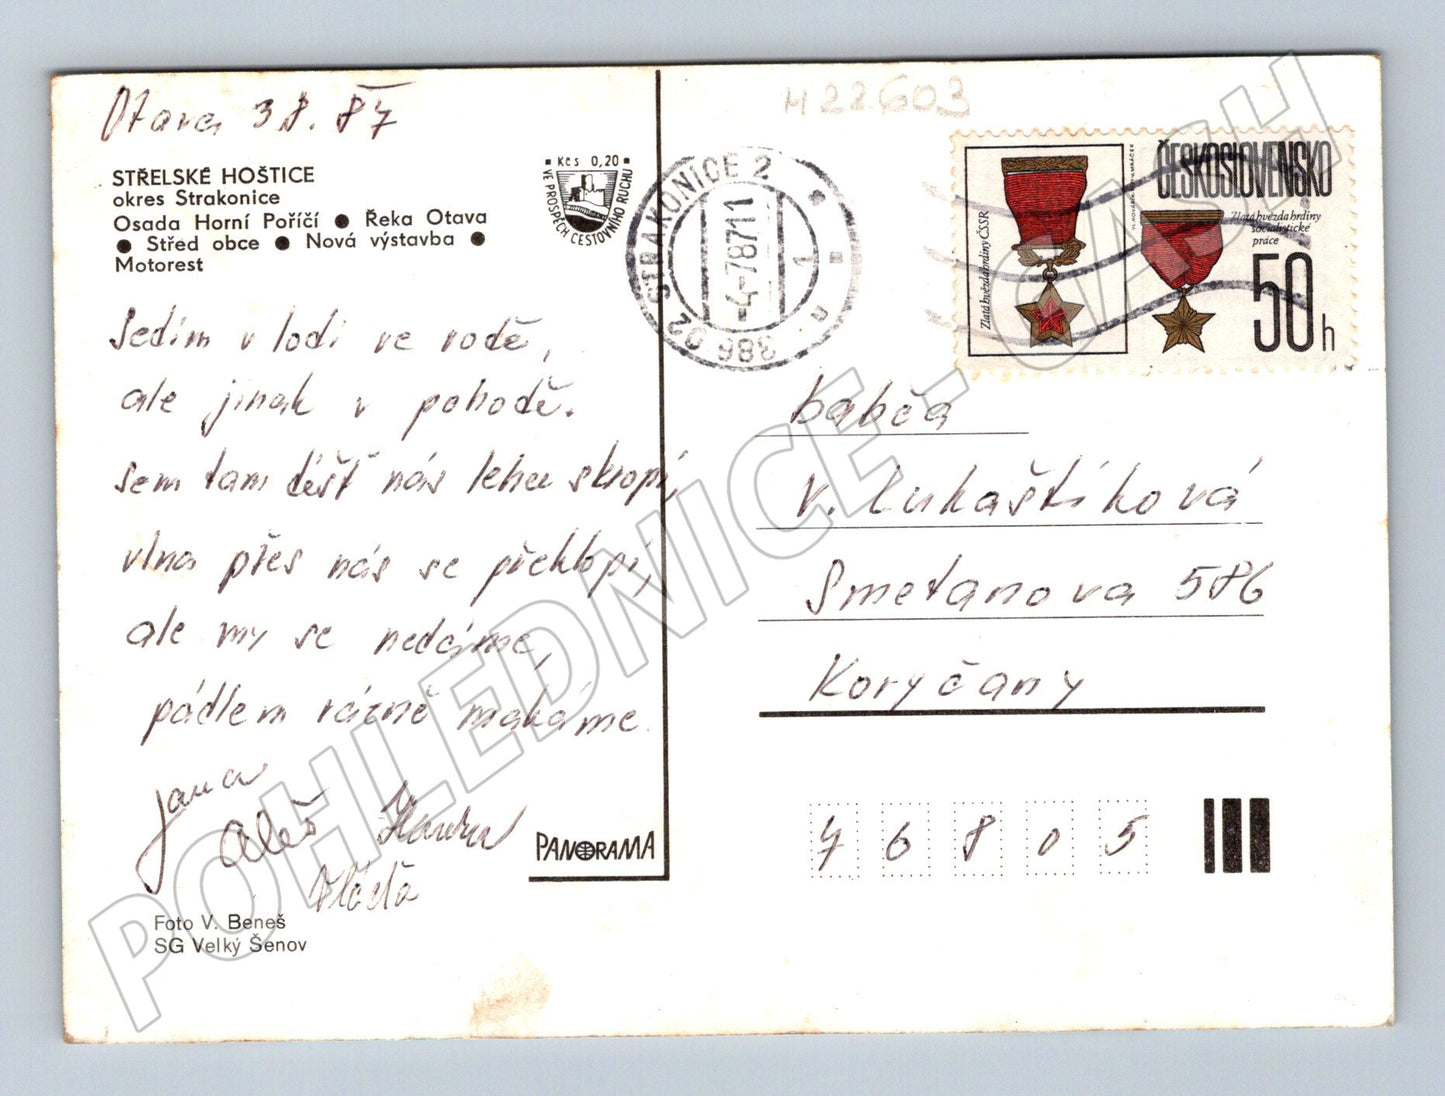 M22603
Otava 3.8. 87
STŘELSKÉ HOŠTICE
okres Strakonice
Osada Horní Poříčí ● Řeka Otava
● Střed obce ● Nová výstavba ●
Motorest
Kčs 0,20
VE PROSPĚCH CESTOVNÍHO RUCHU
386 02 STRAKONICE 2
-4.-78711
1
ČESKOSLOVENSKO
Zlatá hvězda hrdiny ČSSR
Zlatá hvězda hrdiny
socialistické
práce
50 h
Sedím v lodi ve vodě,
ale jinak v pohodě.
Sem tam déšť nás lehce skropí,
vlna přes nás se překlopí,
ale my se nedáme,
pádlem rázně makáme.
Jana
Aleš
Vlasta
babča
V. Lukaštíková
Smetanova 586
Koryčany
76805
PANORAMA
Foto V. Beneš
SG Velký Šenov
POHLEDNICE - CASH